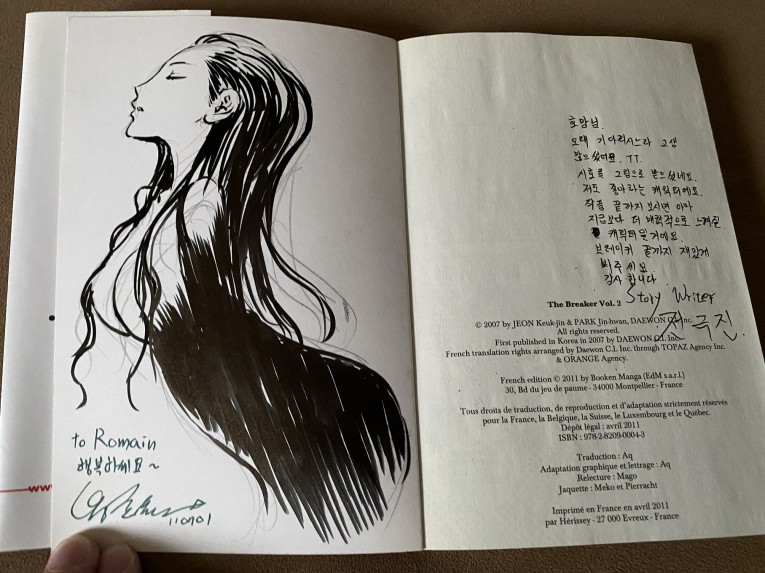 to Romain
행복하세요~
110701
www
로망님.
오래 기다리시느라 고생
많으셨어요. TT.
시호를 그림으로 받으셨네요.
저도 좋아하는 캐릭터에요.
작품 끝까지 보시면 아마
지금보다 더 매력적으로 느껴질
캐릭터일거에요.
브레이커 끝까지 재밌게
봐주세요
감사합니다
Story Writer
전극진.
The Breaker Vol. 2
© 2007 by JEON Keuk-jin & PARK Jin-hwan, DAEWON C.I. Inc.
All rights reserved.
First published in Korea in 2007 by DAEWON C.I. Inc.
French translation rights arranged by Daewon C.I. Inc. through TOPAZ Agency Inc.
& ORANGE Agency.
French edition © 2011 by Booken Manga (EdM s.a.r.l.)
30, Bd du jeu de paume - 34000 Montpellier - France
Tous droits de traduction, de reproduction et d'adaptation strictement réservés
pour la France, la Belgique, la Suisse, le Luxembourg et le Québec.
Dépôt légal : avril 2011
ISBN : 978-2-8209-0004-3
Traduction : Aq
Adaptation graphique et lettrage : Aq
Relecture : Mago
Jaquette : Meko et Pierracht
Imprimé en France en avril 2011
par Hérissey - 27 000 Evreux - France